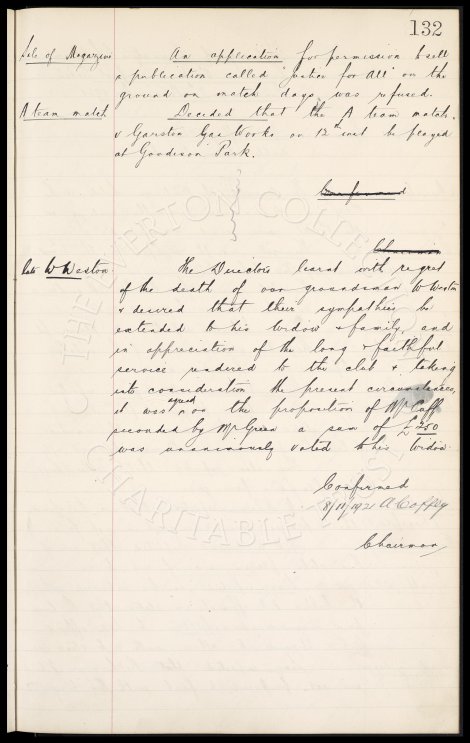 132
Sale of Magazine
An application for permission to sell
a publication called "Justice for All" on the
ground on match days was refused.
A team match
Decided that the A team match
v Garston Gas Works on 12th inst be played
at Goodison Park.
Confirmed
Chairman
late W Weston
The Directors learnt with regret
of the death of our groundsman W Weston
& desired that their sympathies be
extended to his widow & family, and
in appreciation of the long & faithful
service rendered to the club & taking
into consideration the present circumstances,
it was agreed on the proposition of Mr Cuff
seconded by Mr Green a sum of
was unanimously voted to his widow
Confirmed
8/11/1921 A Coffey
Chairman
THE EVERTON COLLECTION
CHARITABLE TRUST